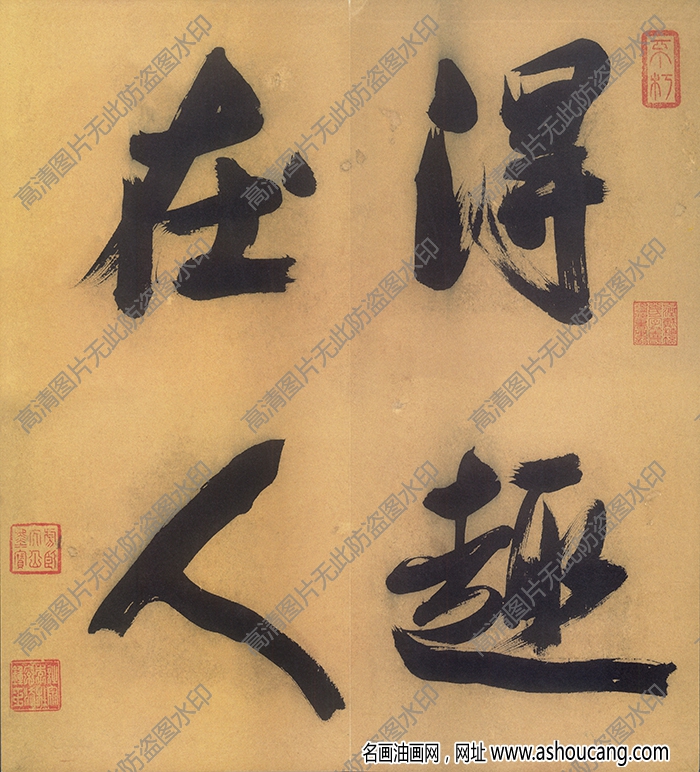 得趣
在人
不朽
高清图片无此防盗图水印
高清图片无此防盗图水印
高清图片无此防盗图水印
高清图片无此防盗图水印
高清图片无此防盗图水印
高清图片无此防盗图水印
高清图片无此防盗图水印
高清图片无此防盗图水印
高清图片无此防盗图水印
名画油画网，网址 www.ashoucang.com